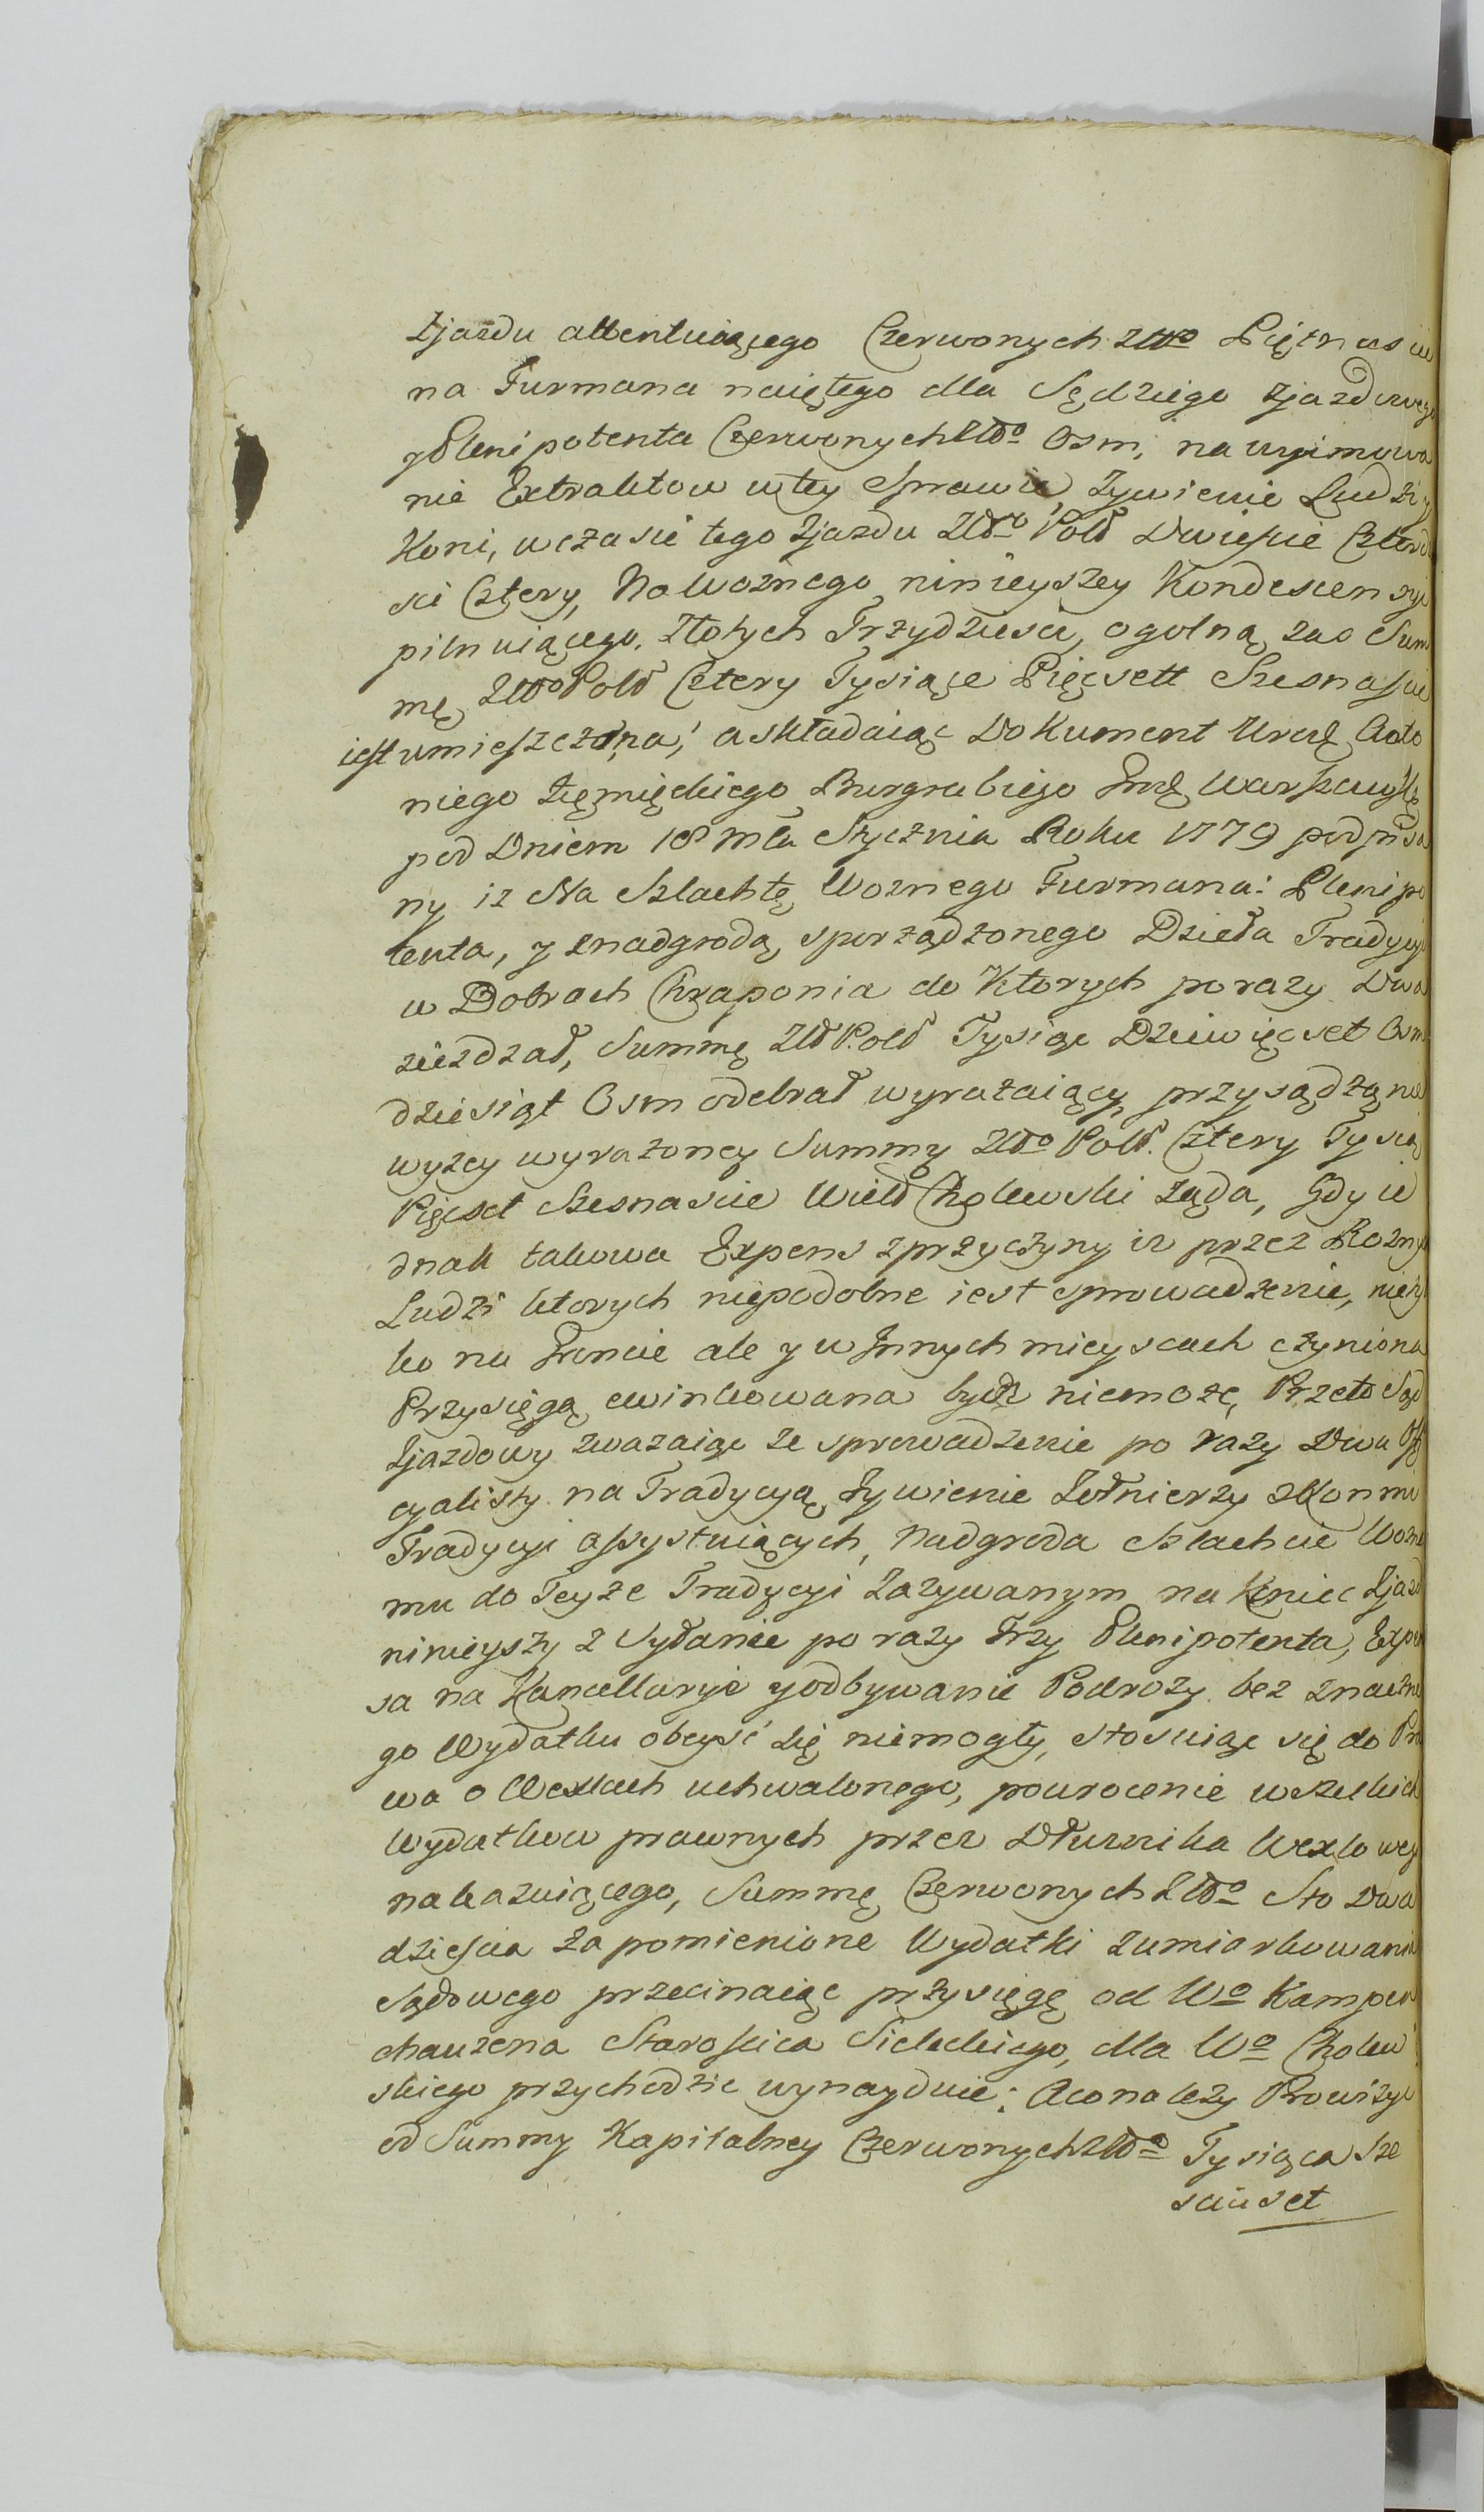 Zjazdu attentuiącego Czerwonych Złłło Piętnascie
na Furmana naiętego dla Sędziego Zjazdowego
y Plenipotenta Czerwonych Złło Osm, na wyimowa
nie Extraktow w tey Sprawie, żywienie Ludzi y
Koni, w czasie tego Zjazdu Złło Poll Dwieście Czterdzie
sci Cztery, Na Woznego ninieyszey Kondescensyi
pilnuiącego, Złotych Trzydzieści, ogolną zas Sum
mę Złło Poll Cztery Tysiące Pięcsett Szesnaście
iest umieszczona, a składaiąc Dokument Urodz Anto
niego Zięmięckiego Burgrabiego Grodz Warszawsk
pod Dniem 18 Mca Stycznia Roku 1779 podpisa
ny iz Na Szlachtę Woznego Furmana: Plenipo
tenta, y znadgrodą sporządzonego Dzieła Tradycyi
w Dobrach Chraponia do Ktorych po razy Dwa
ziezdzał, Summę Zł Poll Tysiąc Dziewięcset Osm
dziesiąt Osm odebrał wyrażaiący, przysądzęnia
wyzey wyrażoney Summy Złło Poll. Cztery Tysią
Pięcset Szesnascie Wiel Cholewski żąda, Gdy ie
dnak takowa Expens z przyczyny iz przez Roznych
Ludzi ktorych niepodobne iest sprowadzenie, nie tyl
ko na Gruncie ale y w Innych mieyscach czyniona
Przysięgą ewinkowana bydz niemoze, Przeto Sąd
Zjazdowy zwazaiąc ze sprowadzenie po razy Dwa Offi
cyalisty na Tradycyą, żywienie Zołnierzy z Konmi
Tradycyi assystuiących, Nadgroda Szlachcie Wozne
mu do Teyze Tradycyi zazywanym na koniec Zjazd
ninieyszy z Sydanie po razy Trzy Plenipotenta, Expen
sa na Kancellaryie y odbywanie Podrozy bez znaczne
go Wydatku obeyść się niemogły, stosuiąc się do Pra
wa o Wexlach uchwalonego, powrocenie wszelkich
Wydatkow prawnych przez Dłuznika Wexlowey
nakazuiącego, Summę Czerwonych Złło Sto Dwa
dzieścia za pomienione Wydatki z umiarkowania
Sądowego przecinaiąc przysięgę od Wo Kampen
chauzena Starościca Sieleckiego, dla Wo Cholew
skiego przychodzic wynayduie; A co nalezy Prowizyi
od Summy Kapitalney Czerwonych Złło Tysiąca Sze
sciuset